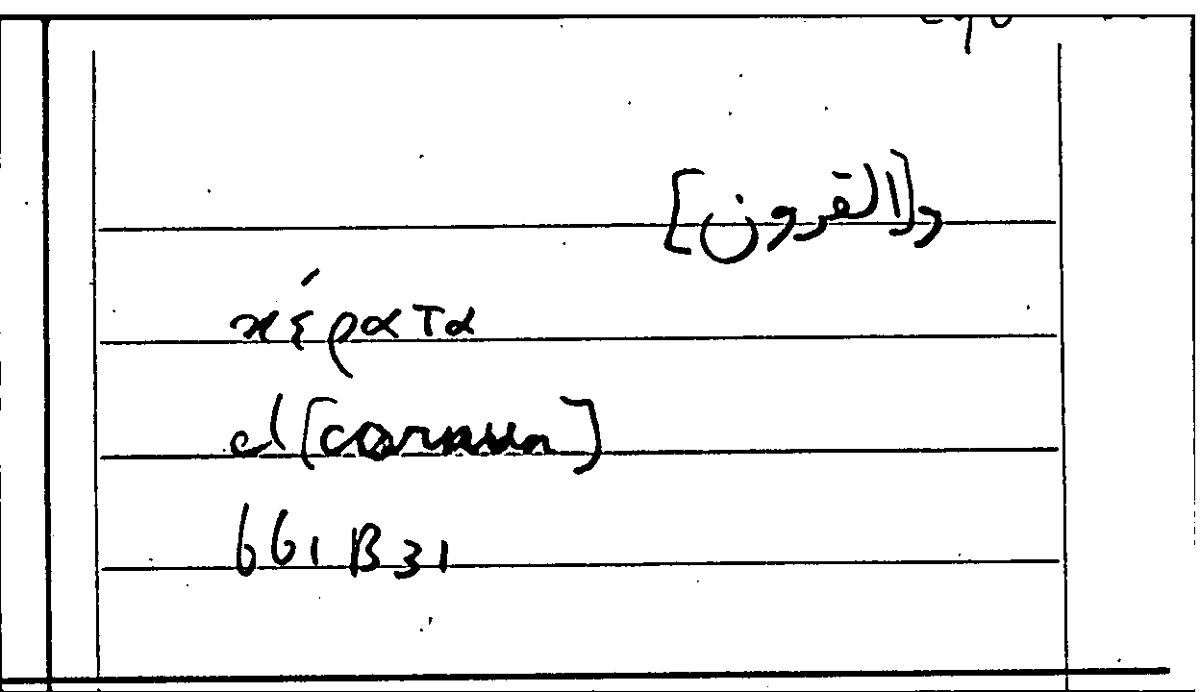 و[القرون]
κέρατα
et [cornua]
661 B 31